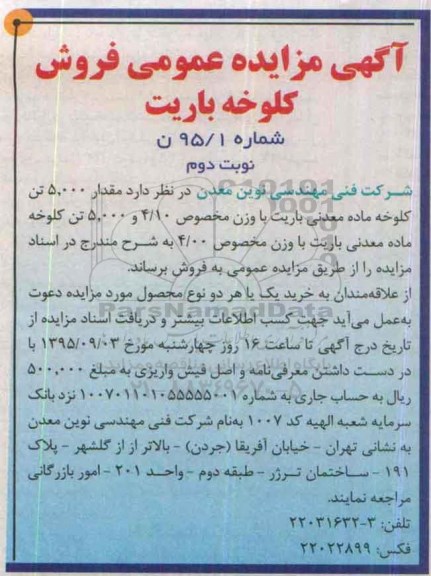 آگهی مزایده عمومی فروش
کلوخه باریت
شماره ۹۵/۱ ن
نوبت دوم
شرکت فنی مهندسی نوین معدن در نظر دارد مقدار ۵,۰۰۰ تن
کلوخه ماده معدنی باریت با وزن مخصوص ۴/۱۰ و ۵,۰۰۰ تن کلوخه
ماده معدنی باریت با وزن مخصوص ۴/۰۰ به شرح مندرج در اسناد
مزایده را از طریق مزایده عمومی به فروش برساند.
از علاقه‌مندان به خرید یک یا هر دو نوع محصول مورد مزایده دعوت
به‌عمل می‌آید جهت کسب اطلاعات بیشتر و دریافت اسناد مزایده از
تاریخ درج آگهی تا ساعت ۱۶ روز چهارشنبه مورخ ۱۳۹۵/۰۹/۰۳ با
در دست داشتن معرفی‌نامه و اصل فیش واریزی به مبلغ ۵۰۰,۰۰۰
ریال به حساب جاری به شماره ۱۰۰۷۰۱۱۰۱۰۵۵۵۵۵۰۰۱ نزد بانک
سرمایه شعبه الهیه کد ۱۰۰۷ به‌نام شرکت فنی مهندسی نوین معدن
به نشانی تهران - خیابان آفریقا (جردن) - بالاتر از از گلشهر - پلاک
۱۹۱ - ساختمان ترزر - طبقه دوم - واحد ۲۰۱ - امور بازرگانی
مراجعه نمایند.
تلفن: ۳-۲۲۰۳۱۶۳۲
فکس: ۲۲۰۲۲۸۹۹
ParsNamadData